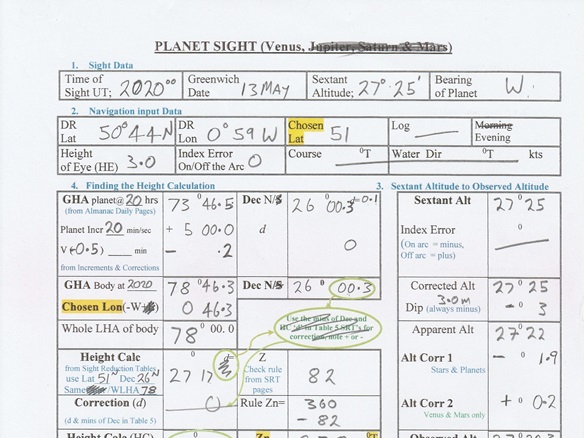 PLANET SIGHT (Venus, Jupiter, Saturn & Mars)
1. Sight Data
Time of Sight UT; 2020⁰⁰ Greenwich Date 13 MAY Sextant Altitude; 27° 25' Bearing of Planet W.
2. Navigation input Data
DR Lat 50° 44 N DR Lon 0° 59 W Chosen Lat 51 Log Morning Evening
Height of Eye (HE) 3.0 Index Error On/Off the Arc 0 Course °T Water Dir °T kts
4. Finding the Height Calculation
GHA planet@ 20 hrs 73° 46.5 Dec N/S 26° 00.3 d=0.1
(from Almanac Daily Pages)
Planet Incr 20 min/sec + 5 00.0 d
V (-0.5) min - .2 0
from Increments & Corrections
GHA Body at 2020 78° 46.3 Dec N/S 26° 00.3
Chosen Lon(-W+E) 0 46.3
Whole LHA of body 78° 00.0
Use the mins of Dec and HC 'd' in Table 5 SRT's for correction, note + or -
Height Calc 27 17 d= Z
from Sight Reduction Tables Check rule from SRT pages 82
use Lat 51°N Dec 26°N
Same /WLHA 78
Correction (d) 0 Rule Zn= 360
(d & mins of Dec in Table 5) - 82
3. Sextant Altitude to Observed Altitude
Sextant Alt 27° 25
Index Error
(On arc = minus, Off arc = plus)
Corrected Alt 27° 25
Dip (always minus) 3.0m - 3
Apparent Alt 27° 22
Alt Corr 1 - 1.9
Stars & Planets
Alt Corr 2 + 0.2
Venus & Mars only